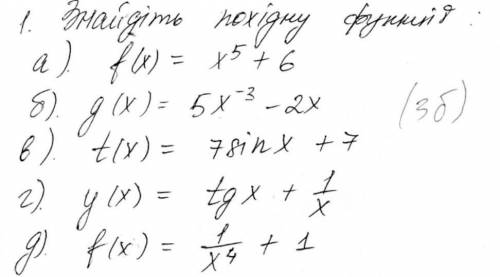 1. Знайдіть похідну функцій:
а). f(x) = x⁵ + 6
б). g(x) = 5x⁻³ - 2x (3б)
в). t(x) = 7sinx + 7
г). y(x) = tgx + 1/x
д). f(x) = 1/x⁴ + 1